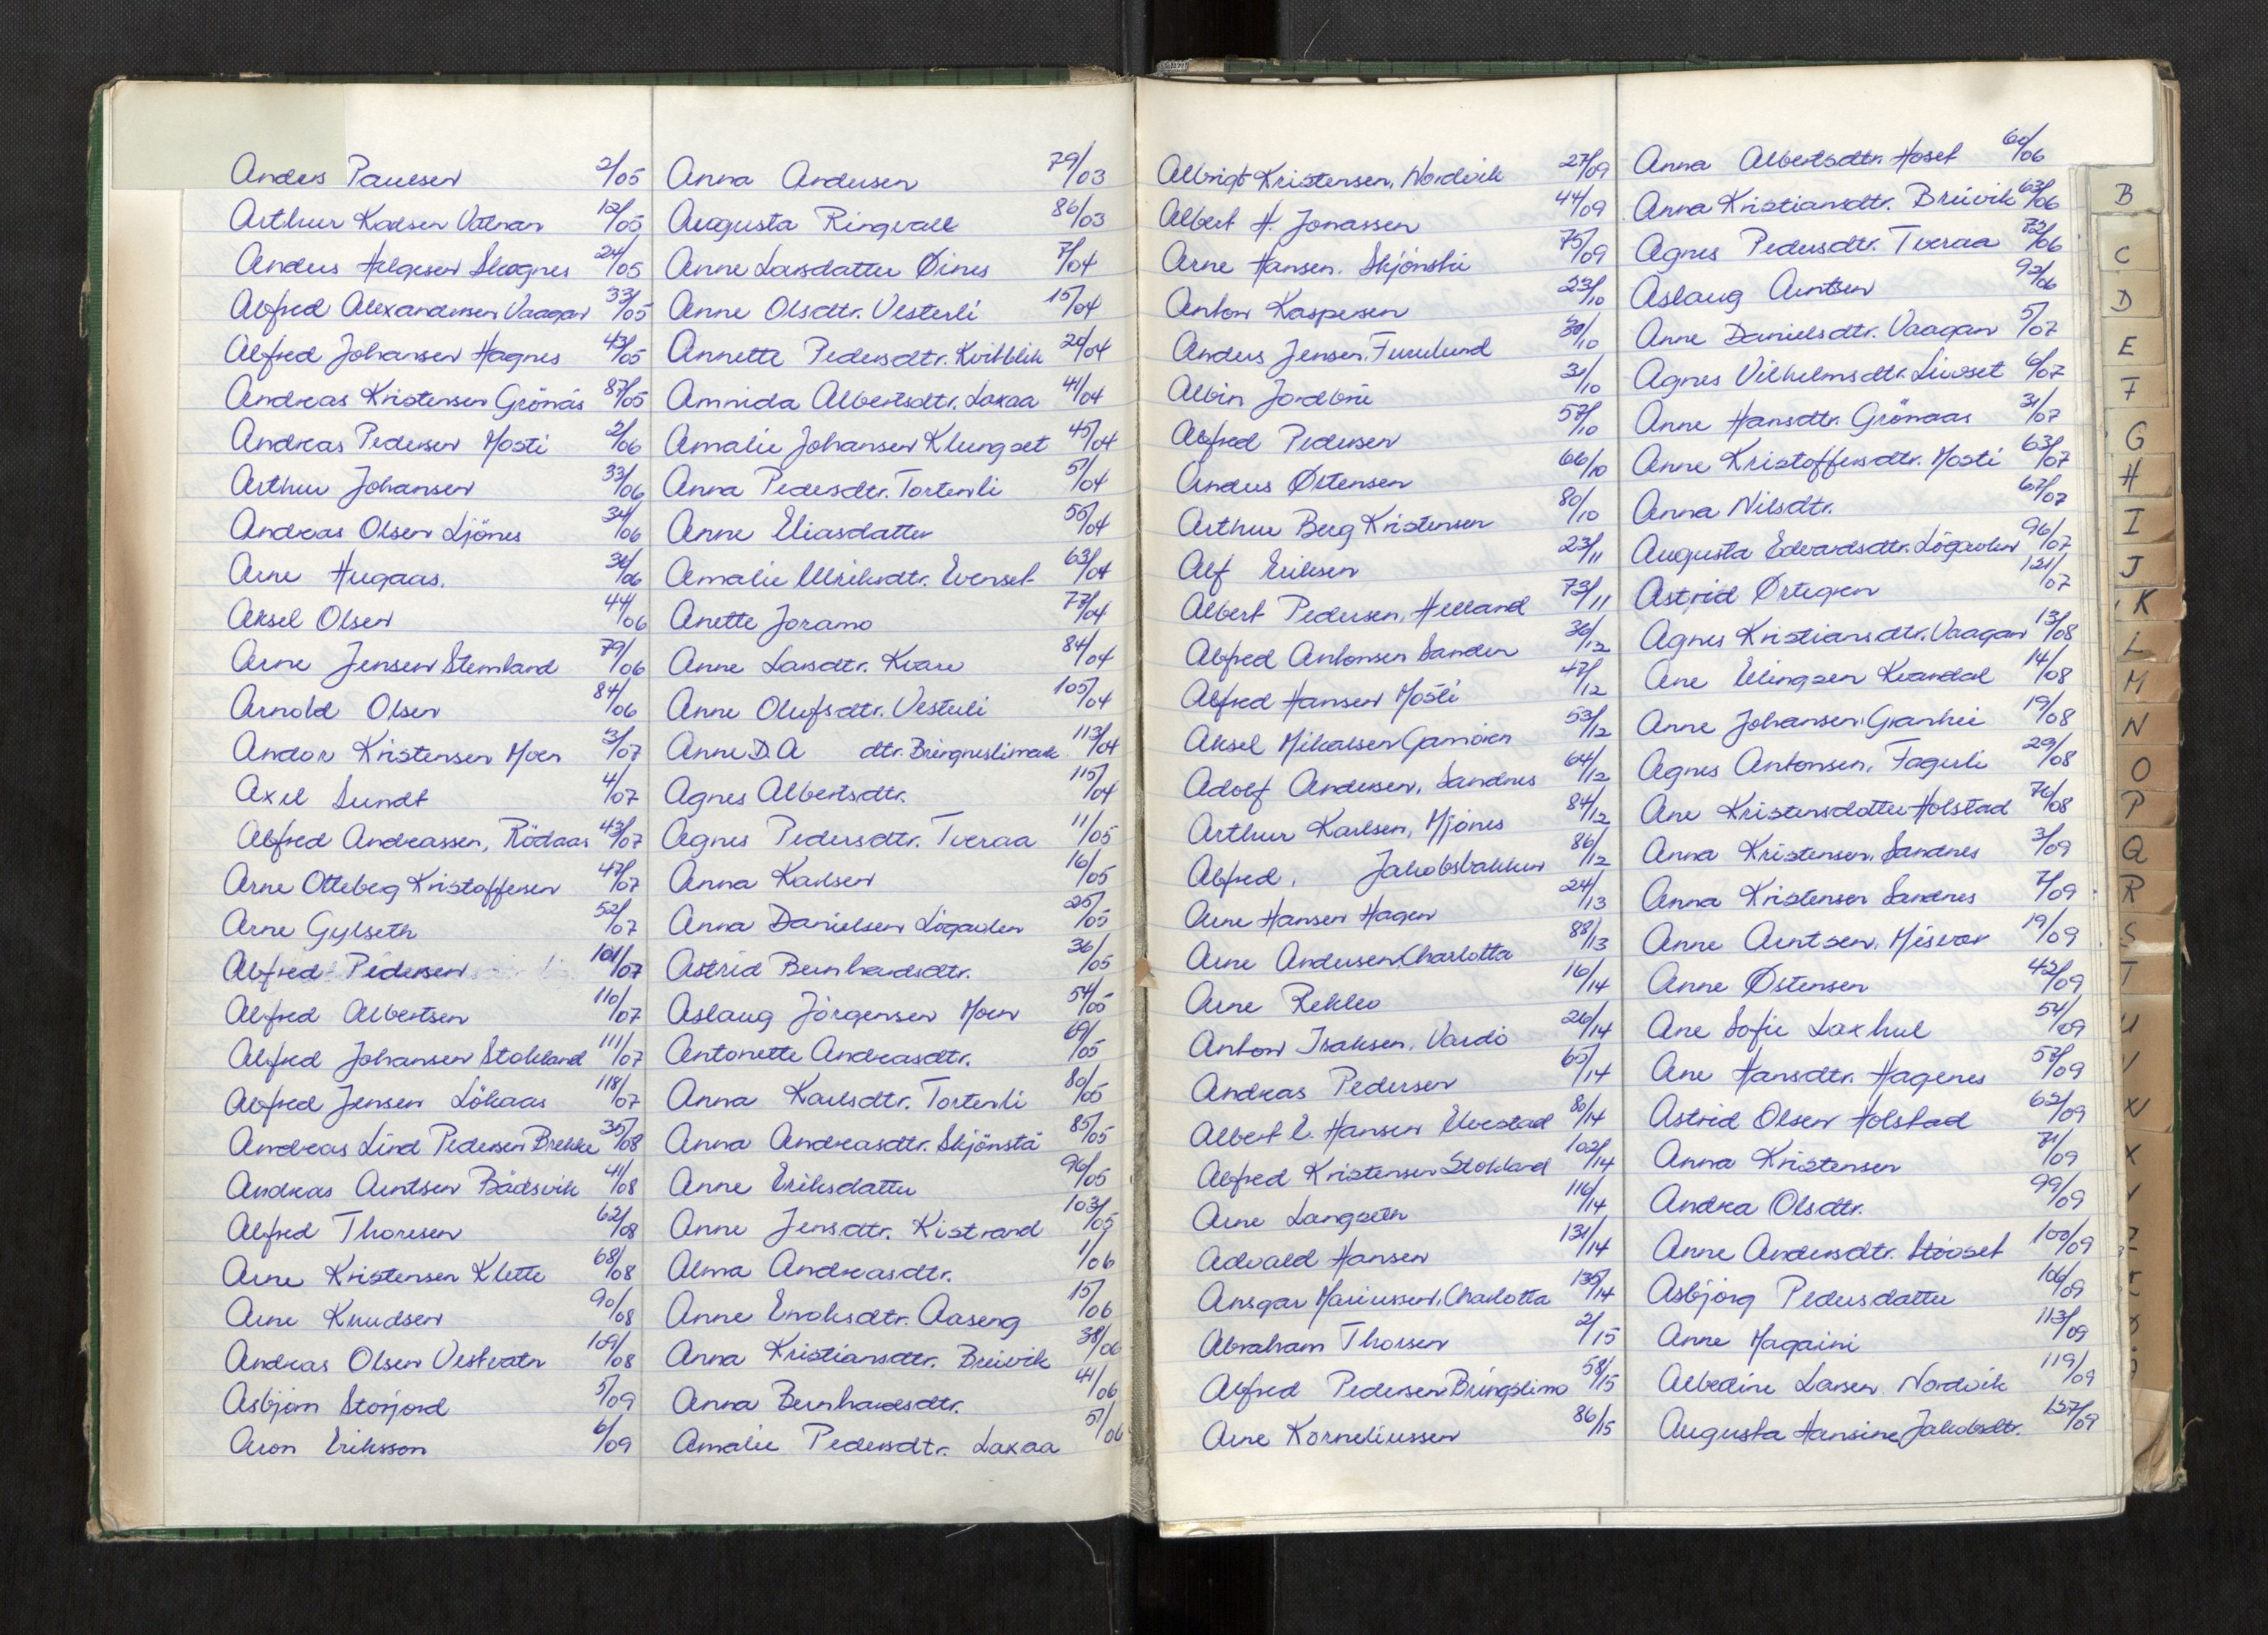 Anders Paulsen 2/05
Arthur Karlsen Vatnan 12/05
Anders Helgesen Skognes 24/05
Alfred Alexandersen Vaagan 33/05
Alfred Johansen Hagnes 43/05
Andreas Kristensen Grönås 87/05
Andreas Pedersen Mosti 2/06
Arthur Johansen 33/06
Andreas Olsen Ljönes 34/06
Arne Hugaas.
Aksel Olsen 44/06
Arne Jensen Stemland 79/06
Arnold Olsen 84/06
Andor Kristensen Moen 3/07
Axel Lundt 4/07
Alfred Andreassen, Rödaas 43/07
Arne Otteberg Kristoffersen 47/07
Arne Gylseth 52/07
Alfred Pedersen 101/07
Alfred Albertsen 110/07
Alfred Johansen Stokland 111/07
Alfred Jensen Lökaas 118/07
Andreas Lind Pedersen Brekke 35/08
Andreas Arntsen Bådsvik 41/08
Alfred Thoresen 62/08
Arne Kristensen Klette 68/08
Arne Knudsen 90/08
Andreas Olsen Vestvatn 109/08
Asbjørn Storjord 5/09
Aron Eriksson 6/09
Anna Andersen 79/03
Augusta Ringvall 86/03
Anne Larsdatter Øines 7/04
Anne Olsdtr. Vesterli 15/04
Annette Pedersdtr. Kvitblik 26/04
Arnida Albertsdtr. Laxaa 41/04
Amalie Johansen Klungset 45/04
Anna Pedersdtr. Tortenli 51/04
Anne Eliasdatter 55/04
Amalie Ulriksdtr. Evenset 63/04
Anette Joramo 77/04
Anne Larsdtr. Kvæv 84/04
Anne Olufsdtr. Vesterli 105/04
Anne D.A dtr. Bringneslimark 113/04
Agnes Albertsdtr. 115/04
Agnes Pedersdtr. Tveraa 11/05
Anna Karlsen 16/05
Anna Danielsen Lögavlen 25/05
Astrid Bernhardsdtr. 36/05
Aslaug Jörgensen Moen 54/05
Antonette Andreasdtr. 69/05
Anna Karlsdtr. Tortenli 80/05
Anna Andreasdtr. Skjönstå 85/05
Anne Eriksdatter 96/05
Anne Jensdtr. Kistrand 103/05
Alma Andreasdtr. 1/06
Anne Enoksdtr. Aaseng 15/06
Anna Kristiansdtr. Breivik 38/06
Anna Bernhardsdtr. 41/06
Amalie Pedersdtr. Laxaa 51/06
Albrigt Kristensen, Nordvik 27/09
Albert H. Jonassen 44/09
Arne Hansen. Skjönstå 75/09
Anton Kaspersen 23/10
Anders Jensen, Furulund 30/10
Albin Jordbru 31/10
Alfred Pedersen 57/10
Anders Østensen 66/10
Arthur Berg Kristensen 80/10
Alf Eriksen 23/11
Albert Pedersen, Helland 73/11
Alfred Antonsen Sanden 36/12
Alfred Hansen Mosti 47/12
Aksel Mikalsen Gamoien 53/12
Adolf Andersen, Sandnes 64/12
Arthur Karlsen, Mjönes 84/12
Alfred, Jakobsbakken 86/12
Arne Hansen Hagen 24/13
Arne Andersen, Charlotta 88/13
Arne Rekko 16/14
Anton Isaksen. Vardö 26/14
Andreas Pedersen 65/14
Albert E. Hansen Elvestad 80/14
Alfred Kristensen Stokland 102/14
Arne Langseth 116/14
Advald Hansen 131/14
Ansgar Mariussen, Charlotta 135/14
Abraham Thorsen 2/15
Alfred Pedersen Bringslimo 58/15
Arne Korneliussen 86/15
Anna Albertsdtr. Hoset 60/06
Anna Kristiansdtr. Breivik 63/06
Agnes Pedersdtr. Tveraa 72/06
Aslaug Arntsen 92/06
Anne Danielsdtr. Vaagan 5/07
Agnes Vilhelmsdtr. Livoset 6/07
Anne Hansdtr. Grönaas 31/07
Anne Kristoffersdtr. Mosti 63/07
Anna Nilsdtr. 67/07
Augusta Edvardsdtr. Lögavlen 96/07
Astrid Ørtegren 121/07
Agnes Kristiansdtr. Vaagan 13/08
Ane Elingsen Kvandal 14/08
Anne Johansen, Granhei 19/08
Agnes Antonsen, Fagerli 29/08
Ane Kristensdatter Holstad 76/08
Anna Kristensen, Sandnes 3/09
Anna Kristensen Sandnes 7/09
Anne Arntsen, Misvær 19/09
Anne Østensen 42/09
Ane Sofie Laxhul 54/09
Ane Hansdtr. Hagenes 57/09
Astrid Olsen Holstad 62/09
Anna Kristensen 71/09
Andrea Olsdtr. 99/09
Anne Andersdtr. Storset 100/09
Asbjörg Pedersdatter 106/09
Anne Magaini 113/09
Albedine Larsen Nordvik 119/09
Augusta Hansine Jakobsdtr. 137/09
B
C
D
E
F
G
H
I
J
K
L
M
N
O
P
Q
R
S
T
U
V
W
X
Y
Z